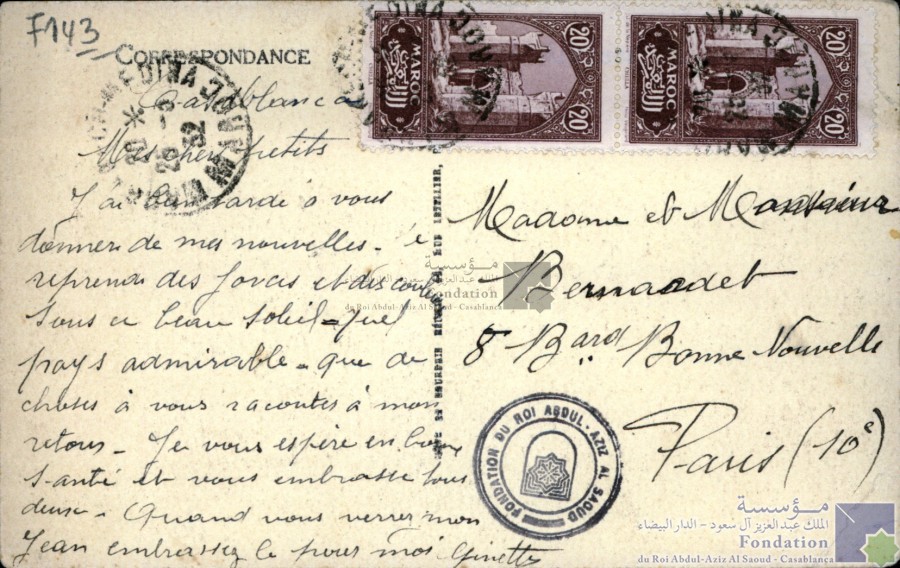 F143
CORRESPONDANCE
Casablanca
Mes chers petits
J'ai bien tardé à vous
donner de mes nouvelles - Je
reprends des forces et des couleurs
sous ce beau soleil - quel
pays admirable - que de
choses à vous racontés à mon
retour - Je vous espère en bonne
santé et vous embrasse tous
deux - Quand vous verrez mon
Jean embrassez le pour moi Ginette
20 MAROC 20
20 MAROC 20
MEDINA
25 32
MAROC
Madame et Monsieur
Bernaudet
8 Bard Bonne Nouvelle
Paris (10e)
FONDATION DU ROI ABDUL-AZIZ AL SAOUD
مؤسسة
الملك عبدالعزيز آل سعود - الدار البيضاء
Fondation
du Roi Abdul-Aziz Al Saoud - Casablanca
مؤسسة
الملك عبدالعزيز آل سعود - الدار البيضاء
Fondation
du Roi Abdul-Aziz Al Saoud - Casablanca